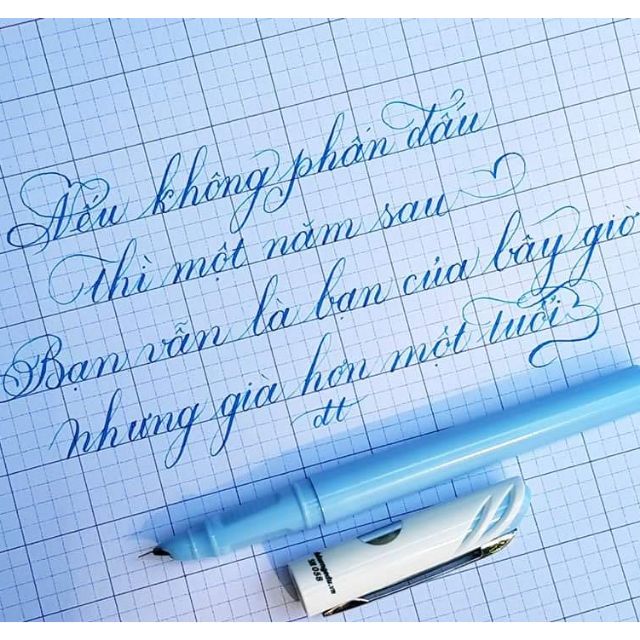 Nếu không phấn đấu
thì một năm sau
Bạn vẫn là bạn của bây giờ
nhưng già hơn một tuổi
đtt
SH 058